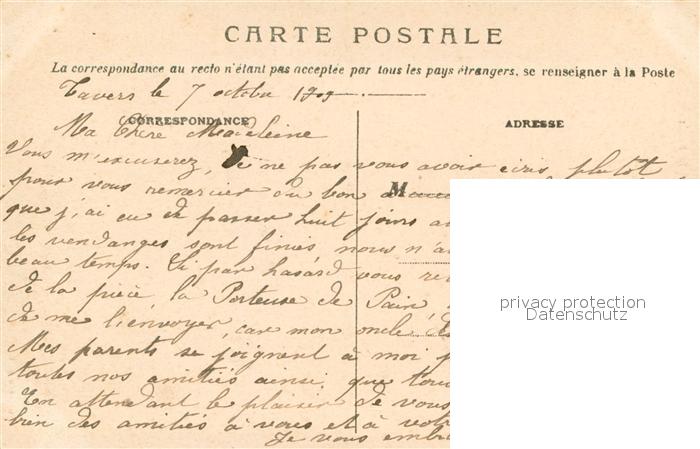 CARTE POSTALE
La correspondance au recto n'étant pas acceptée par tous les pays étrangers, se renseigner à la Poste
Tavers le 7 octobre 1909
CORRESPONDANCE
ADRESSE
Ma Chère Madeleine
Vous m'excuserez, de ne pas vous avoir écris plutôt
pour vous remercier du bon
M
que j'ai eu de passer huit jours
les vendanges sont finies nous n'a
beau temps. Si par hasard vous
de la pièce, la Porteuse de Pain,
de me l'envoyer, car mon oncle
Mes parents se joignent à moi p
toutes nos amitiés ainsi que
En attendant le plaisir de vous
bien des amitiés à vous et à vot
Je vous embr
privacy protection
Datenschutz